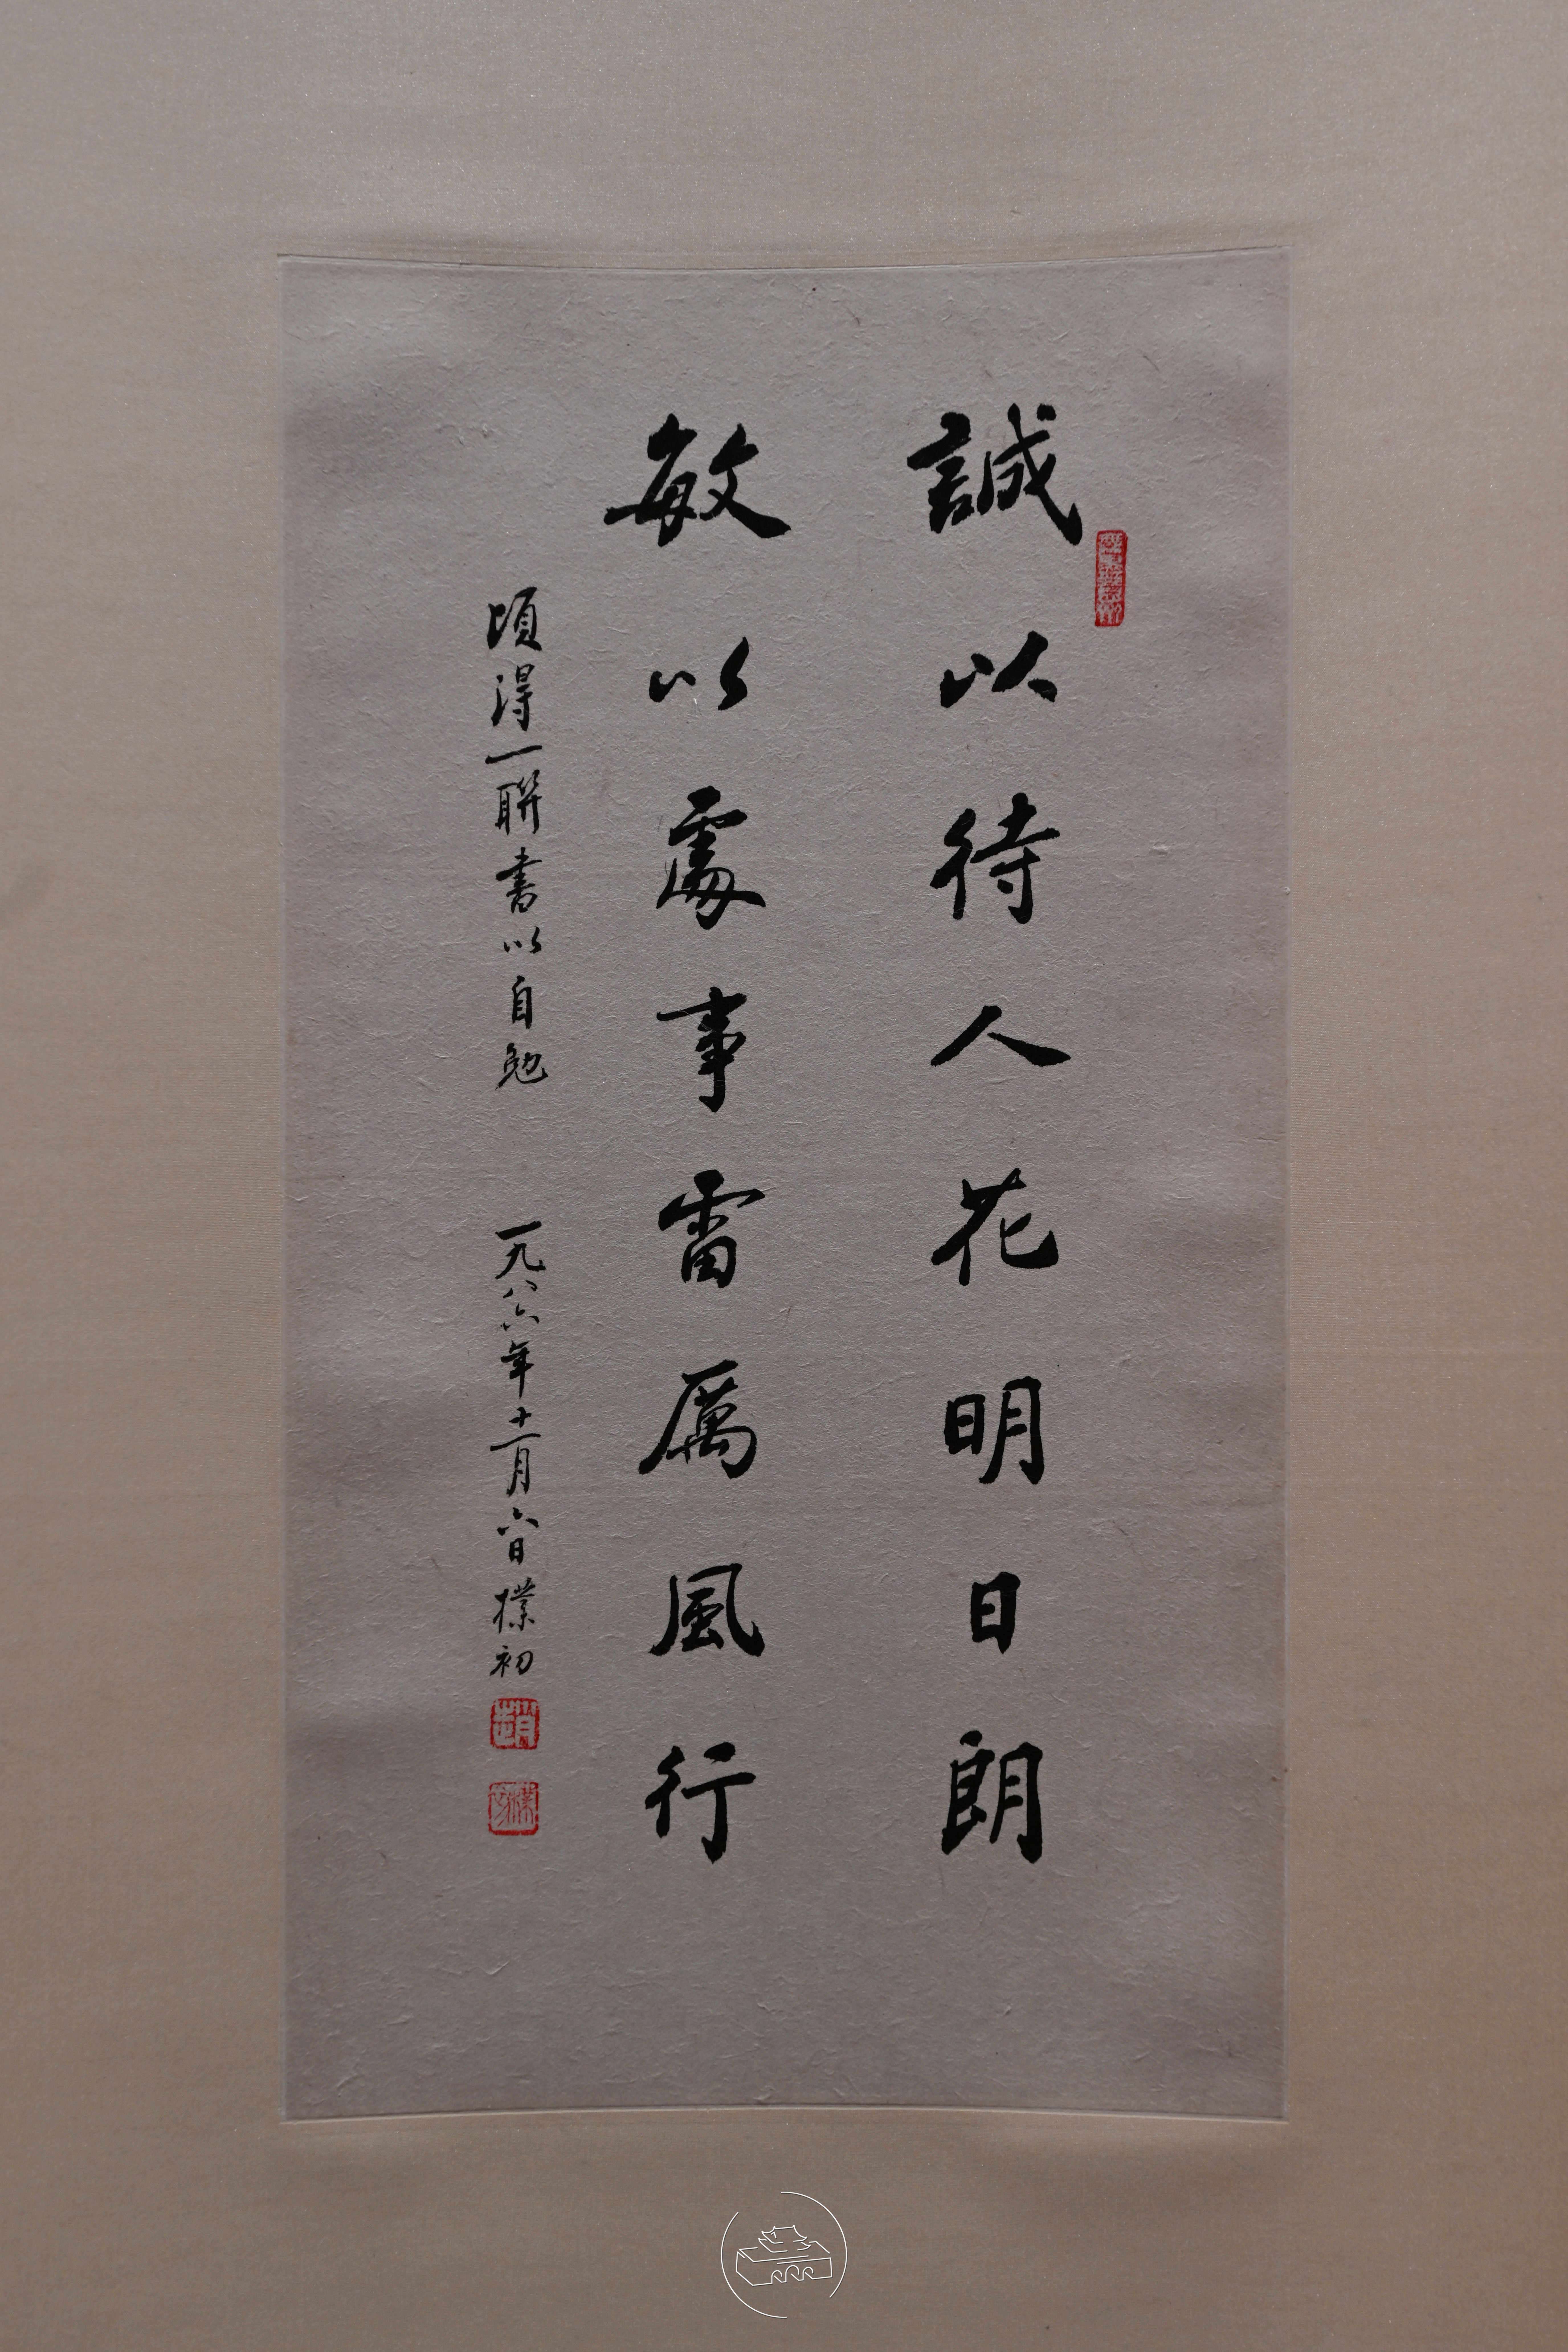 誠以待人花明日朗
敏以處事雷厲風行
頃得一聯書以自勉 一九八六年十二月六日 樸初
趙
樸初